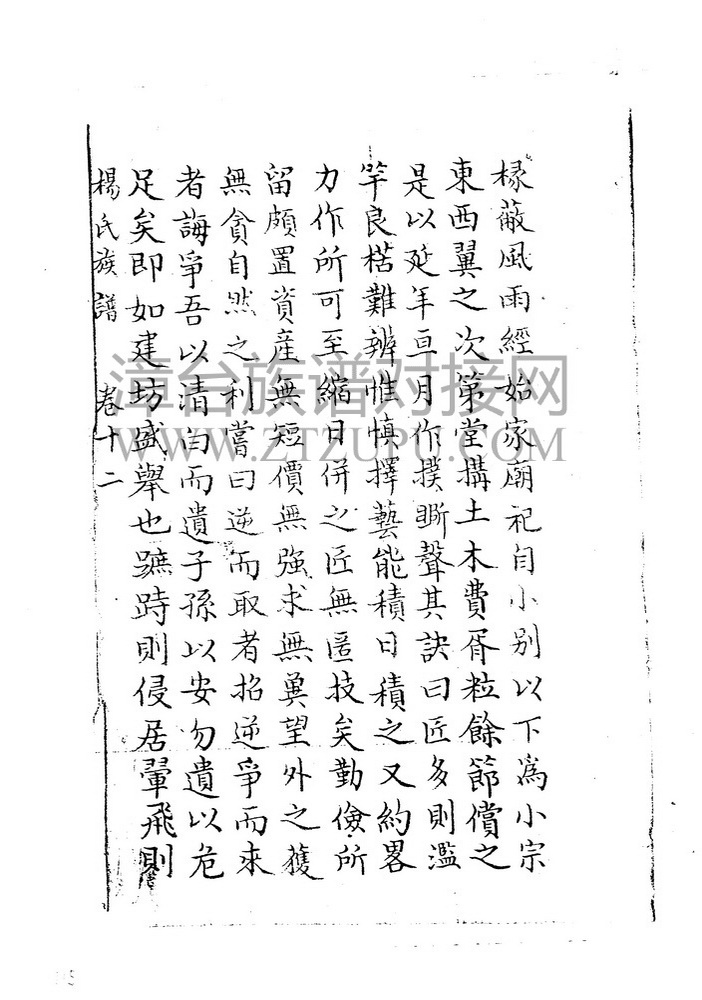 椽蔽風雨經始家廟祀自小别以下為小宗
東西翼之次第堂搆土木費胥粒餘節償之
是以延年亘月作撲斷聲其訣曰匠多則濫
竽良楛難辨惟慎擇藝能積日積之又約畧
力作所可至縮日併之匠無匿技矣勤儉所
留頗置資産無短價無強求無冀望外之獲
無貪自然之利嘗曰逆而取者招逆爭而来
者誨爭吾以清白而遺子孫以安勿遺以危
足矣即如建坊盛舉也蹠時則侵居翬飛則
楊氏族譜 卷十二
漳台族谱对接网
WWW.ZTZUPU.COM